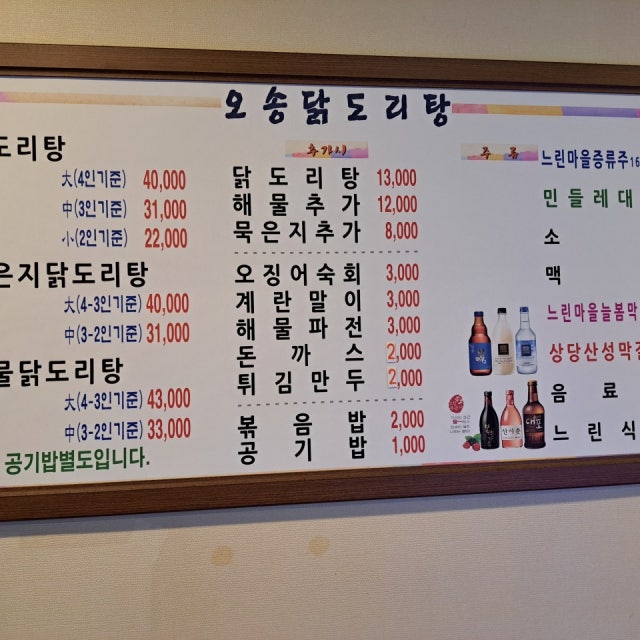 오송닭도리탕
도리탕
大(4인기준) 40,000
中(3인기준) 31,000
小(2인기준) 22,000
은지닭도리탕
大(4-3인기준) 40,000
中(3-2인기준) 31,000
물닭도리탕
大(4-3인기준) 43,000
中(3-2인기준) 33,000
공기밥별도입니다.
추가시
닭도리탕 13,000
해물추가 12,000
묵은지추가 8,000
오징어숙회 3,000
계란말이 3,000
해물파전 3,000
돈까스 2,000
튀김만두 2,000
볶음밥 2,000
공기밥 1,000
주류
느린마을증류주16
민들레대
소
맥
느린마을늘봄막
상당산성막걸
음료
느린식